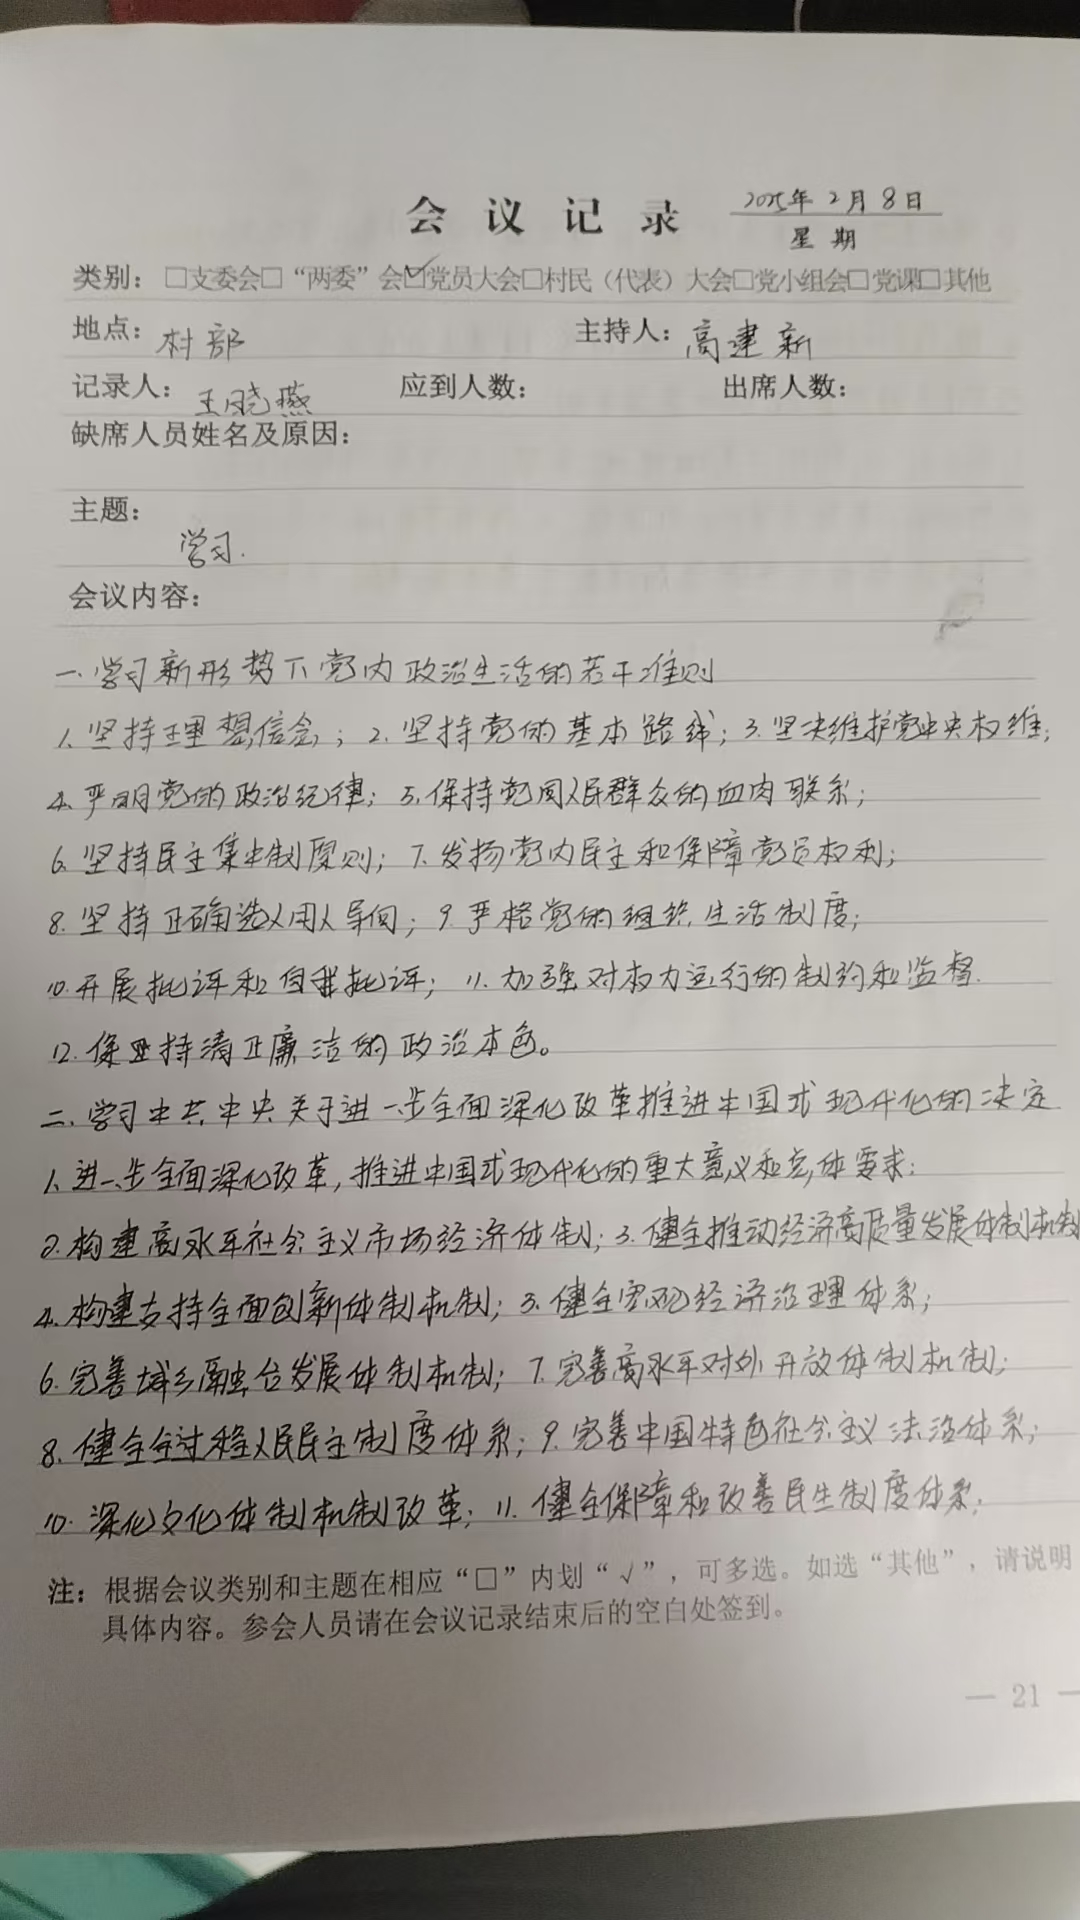 会议记录 2025年2月8日
星期
类别：□支委会□“两委”会☑党员大会□村民（代表）大会□党小组会□党课□其他
地点：村部 主持人：高建新
记录人：王晓燕 应到人数： 出席人数：
缺席人员姓名及原因：
主题：
学习.
会议内容：
一.学习新形势下党内政治生活的若干准则
1.坚持理想信念；2.坚持党的基本路线；3.坚决维护党中央权维；
4.严明党的政治纪律；5.保持党同人民群众的血肉联系；
6.坚持民主集中制原则；7.发扬党内民主和保障党员权利；
8.坚持正确选人用人导向；9.严格党的组织生活制度；
10.开展批评和自我批评；11.加强对权力运行的制约和监督.
12.保持清正廉洁的政治本色。
二.学习中共中央关于进一步全面深化改革推进中国式现代化的决定
1.进一步全面深化改革,推进中国式现代化的重大意义和总体要求；
2.构建高水平社会主义市场经济体制；3.健全推动经济高质量发展体制机制
4.构建支持全面创新体制机制；5.健全宏观经济治理体系；
6.完善城乡融合发展体制机制；7.完善高水平对外开放体制机制；
8.健全全过程人民民主制度体系；9.完善中国特色社会主义法治体系；
10.深化文化体制机制改革；11.健全保障和改善民生制度体系；
注：根据会议类别和主题在相应“□”内划“√”，可多选。如选“其他”，请说明
具体内容。参会人员请在会议记录结束后的空白处签到。
— 21 —